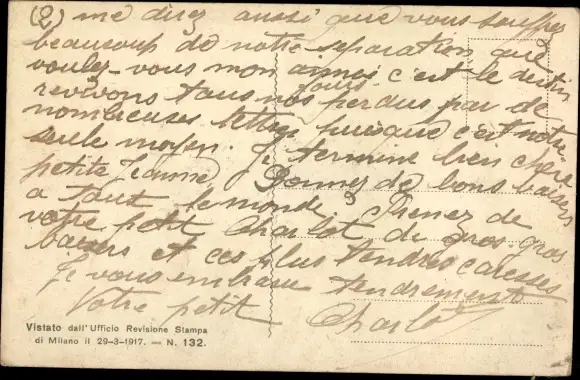 (2) me direz aussi que vous souffrez
beaucoup de notre séparation que
voulez-vous mon aimée c'est le destin
revivons tous nos jours perdus par de
nombreuses lettres puisque c'est notre
seule moyen. Je termine bien chère
petite Jeanne. Donnez de bons baisers
a tout le monde, Prenez de
votre petit Charlot de gros gros
baisers et ces plus tendres caresses
Je vous embrasse tendrement
Votre petit Charlot
Vistato dall'Ufficio Revisione Stampa
di Milano il 29-3-1917. — N. 132.